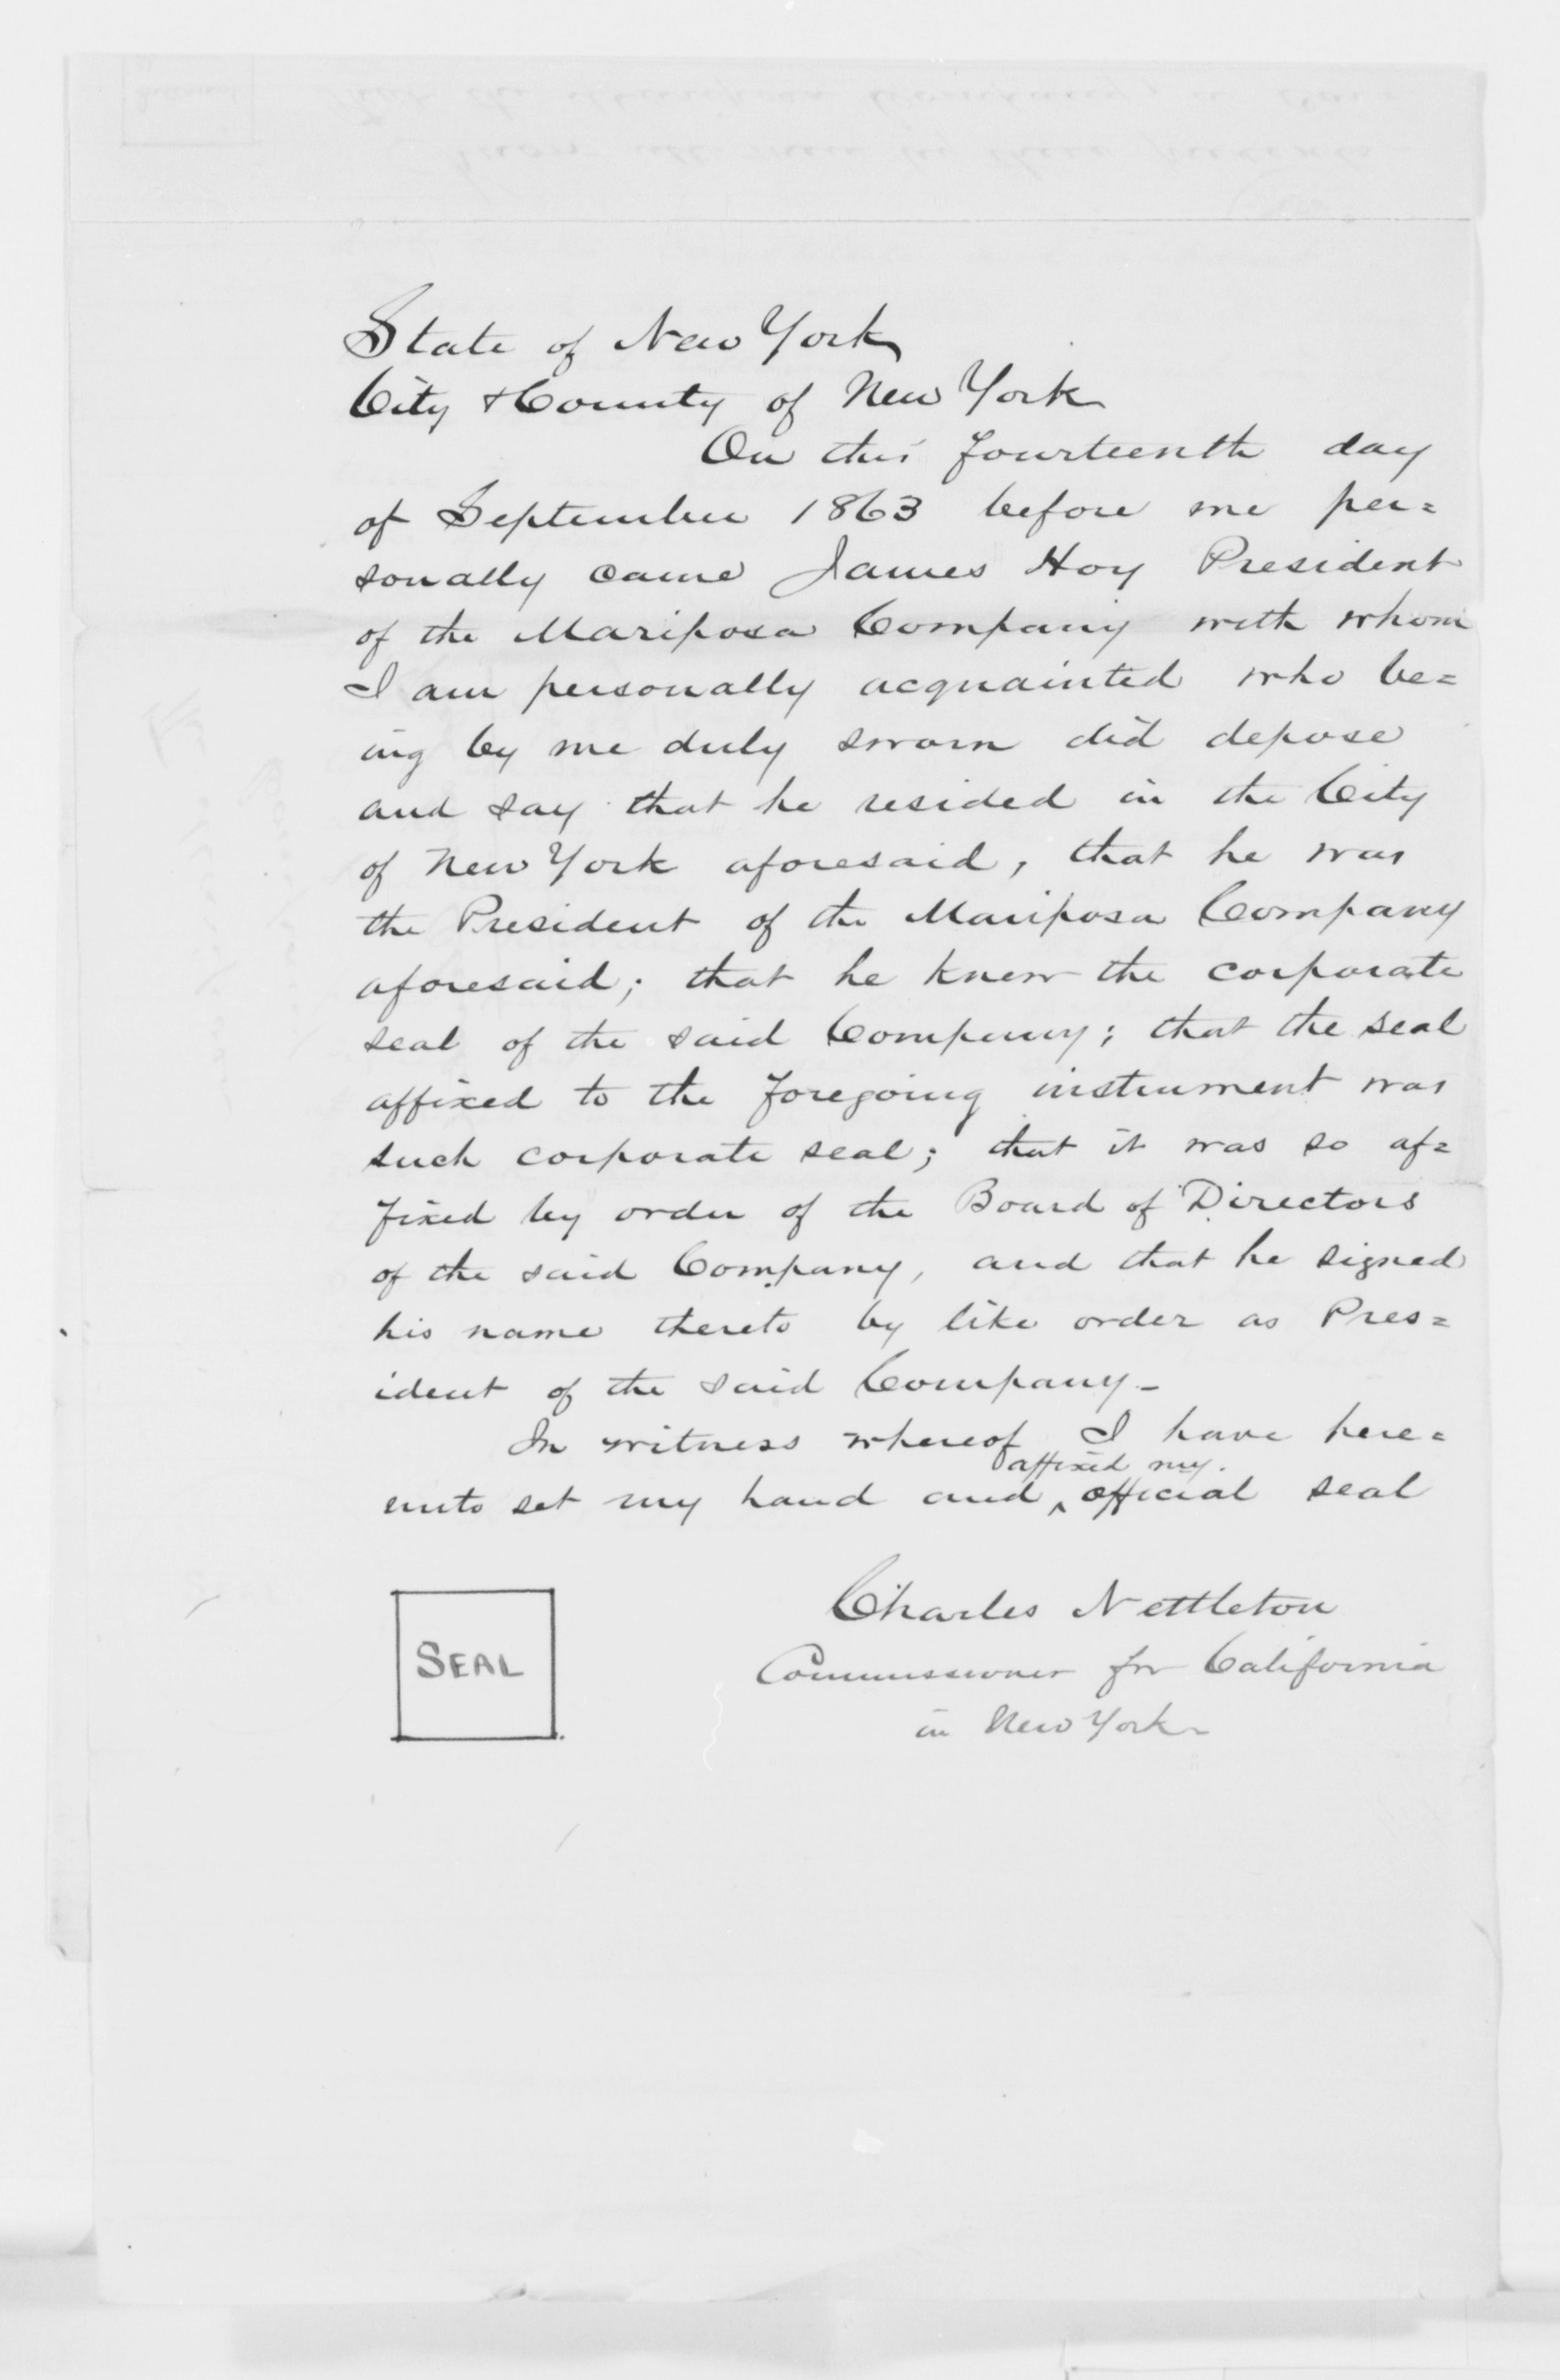 State of New York
City & County of New York
On this fourteenth day
of September 1863 before me per=
sonally came James Hoy President
of the Mariposa Company with whom
I am personally acquainted who be=
ing by me duly sworn did depose
and say that he resided in the City
of New York aforesaid, that he was
the President of the Mariposa Company
aforesaid; that he knew the corporate
seal of the said Company; that the seal
affixed to the foregoing instrument was
such corporate seal; that it was so af=
fixed by order of the Board of Directors
of the said Company, and that he signed
his name thereto by like order as Pres=
ident of the said Company-
In witness whereof I have here=
affixed my
unto set my hand and ^ official seal
Charles Nettleton
SEAL
Commissioner for California
in New York